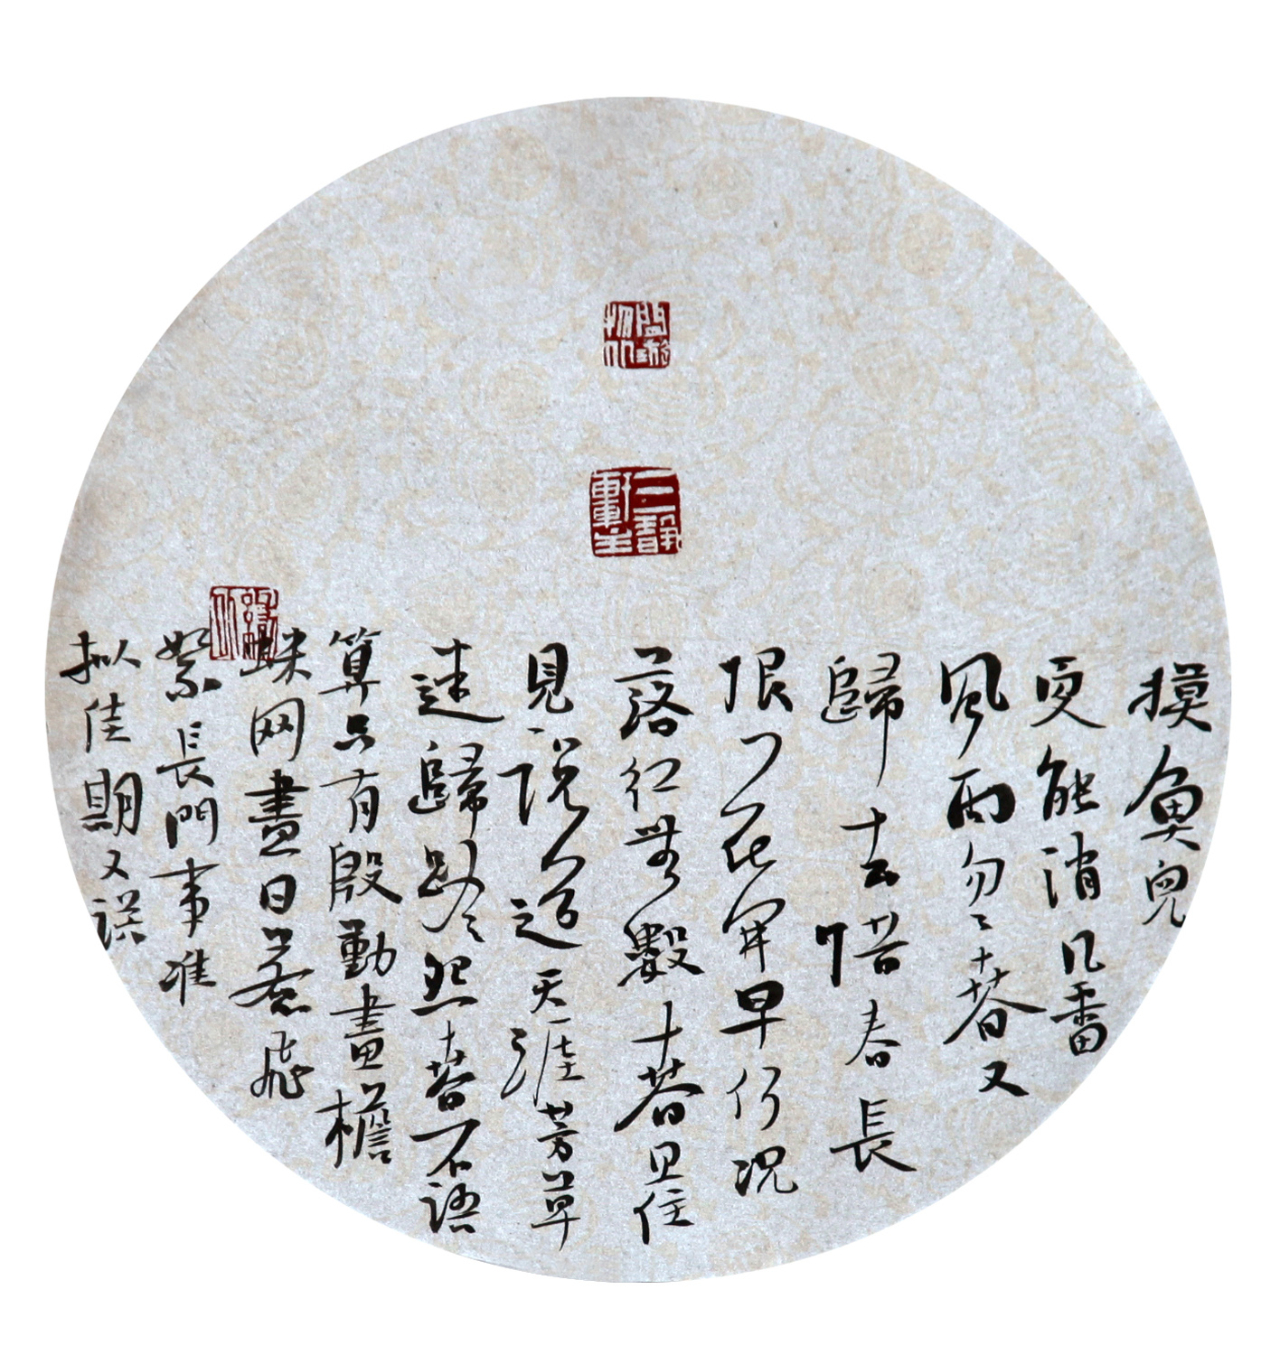 摸魚兒
更能消几番
風雨匆匆春又
歸去惜春長
恨花開早何況
落紅無數春且住
見說道天涯芳草
迷歸路怨春不語
算只有殷勤畫檐
蛛网盡日惹飛
絮長門事准
拟佳期又误
二靜軒主